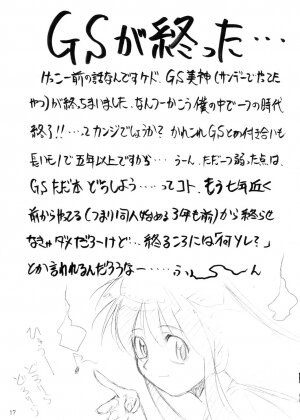 GSが終った…
けっこー前の話なんですケド、GS美神(サンデーでやってた
やつ)が終っちまいました、なんつーかこう僕の中で一つの時代
終了!!…ってカンジでしょうか? かれこれGSとのお付き合いも
長いモノで五年以上ですから……うーん、ただ一つ弱った点は、
GSただ本どうしよう…ってコト、もう七年近く
前からやってる(つまり同人始める3年も前)から終らせ
なきゃダメだろ〜けど…終るころには「何ソレ?」
とか言われるんだろうなー……ふぅ〜ん
ひょう〜
どろどろ
どろどろ
17